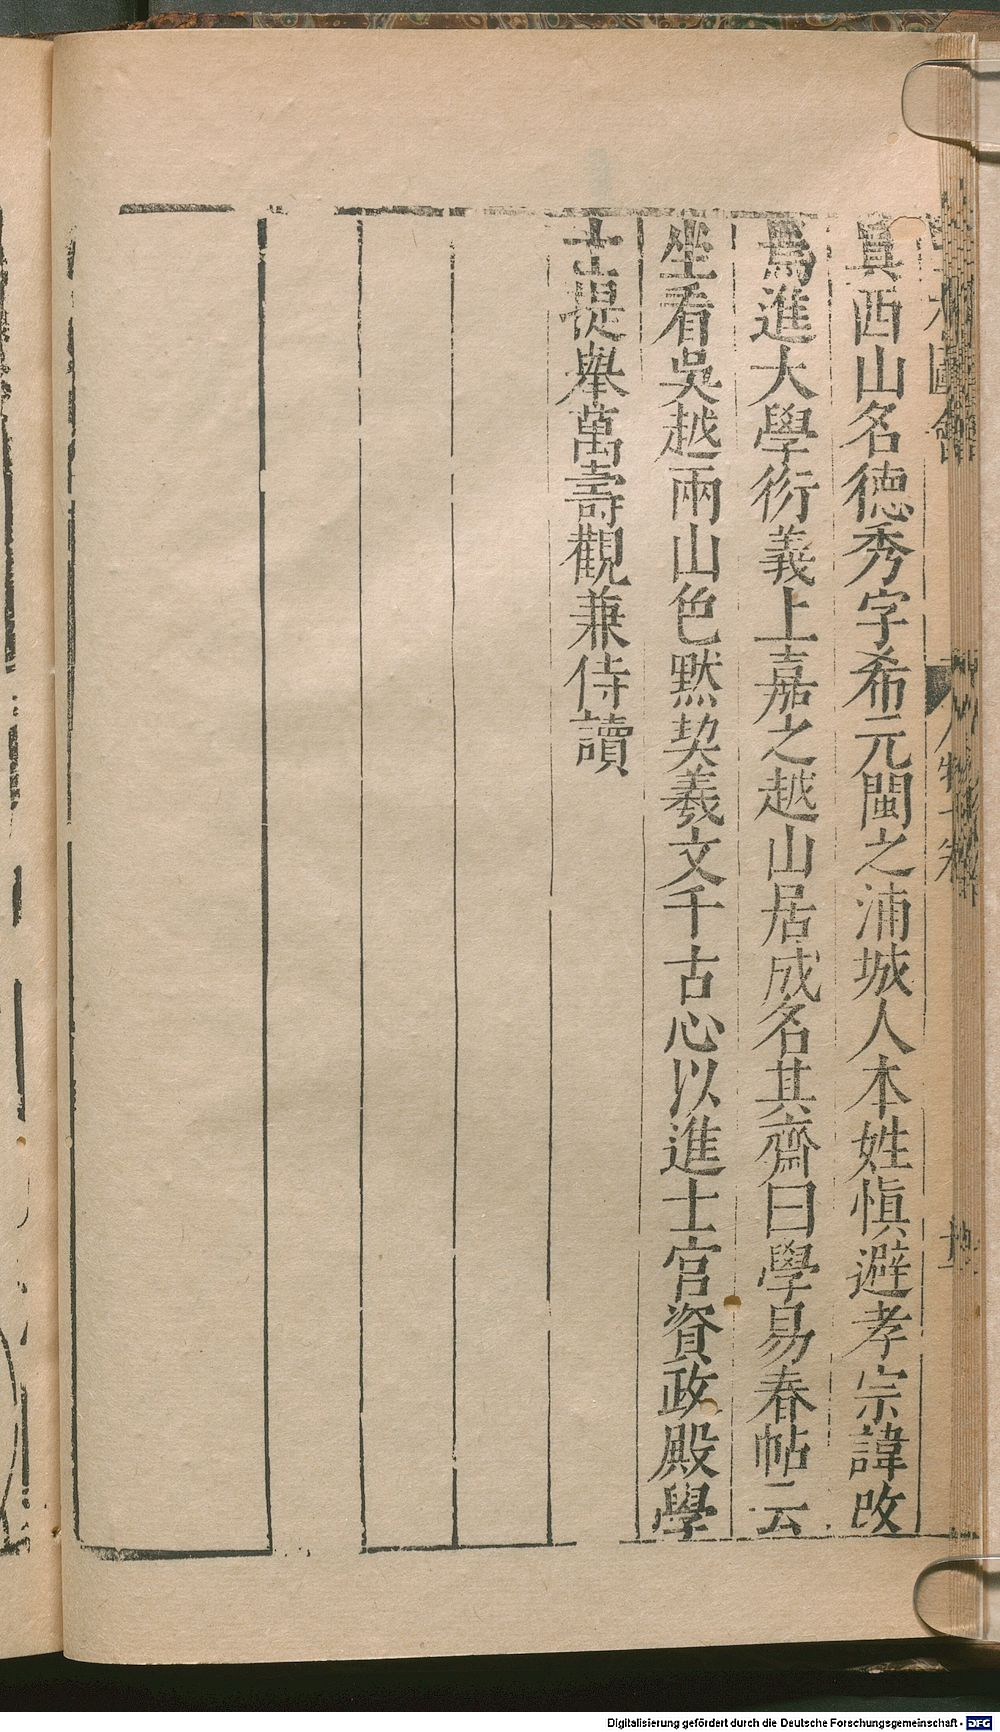 真西山名德秀字希元閩之浦城人本姓愼避孝宗諱改
爲進大學衍義上嘉之越山居成名其齋曰學易春帖云
坐看吳越兩山色默契羲文千古心以進士官資政殿學
士提舉萬壽觀兼侍讀
圖會
人物
Digitalisierung gefördert durch die Deutsche Forschungsgemeinschaft - DFG